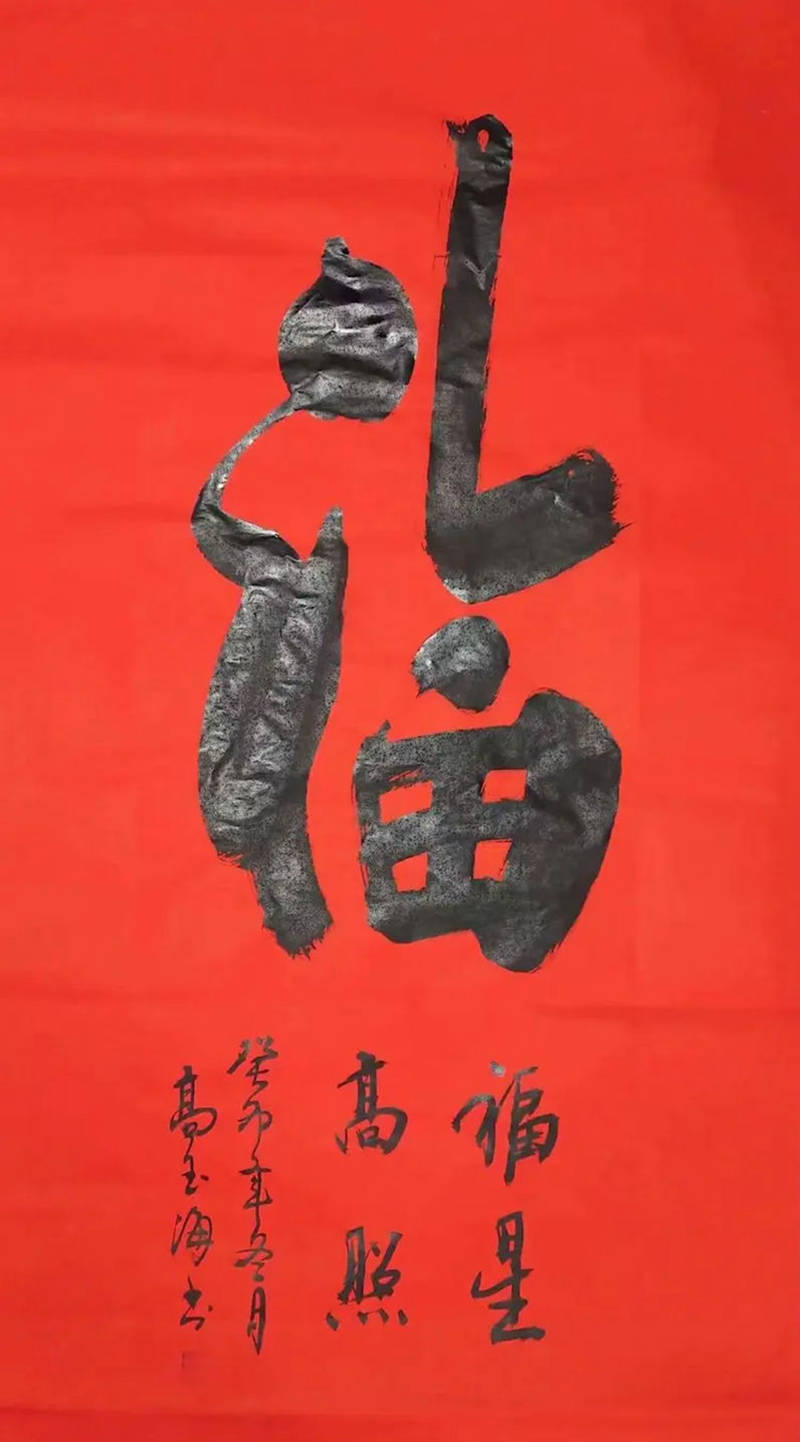 福
福星
高照
癸卯年冬月
高玉海书